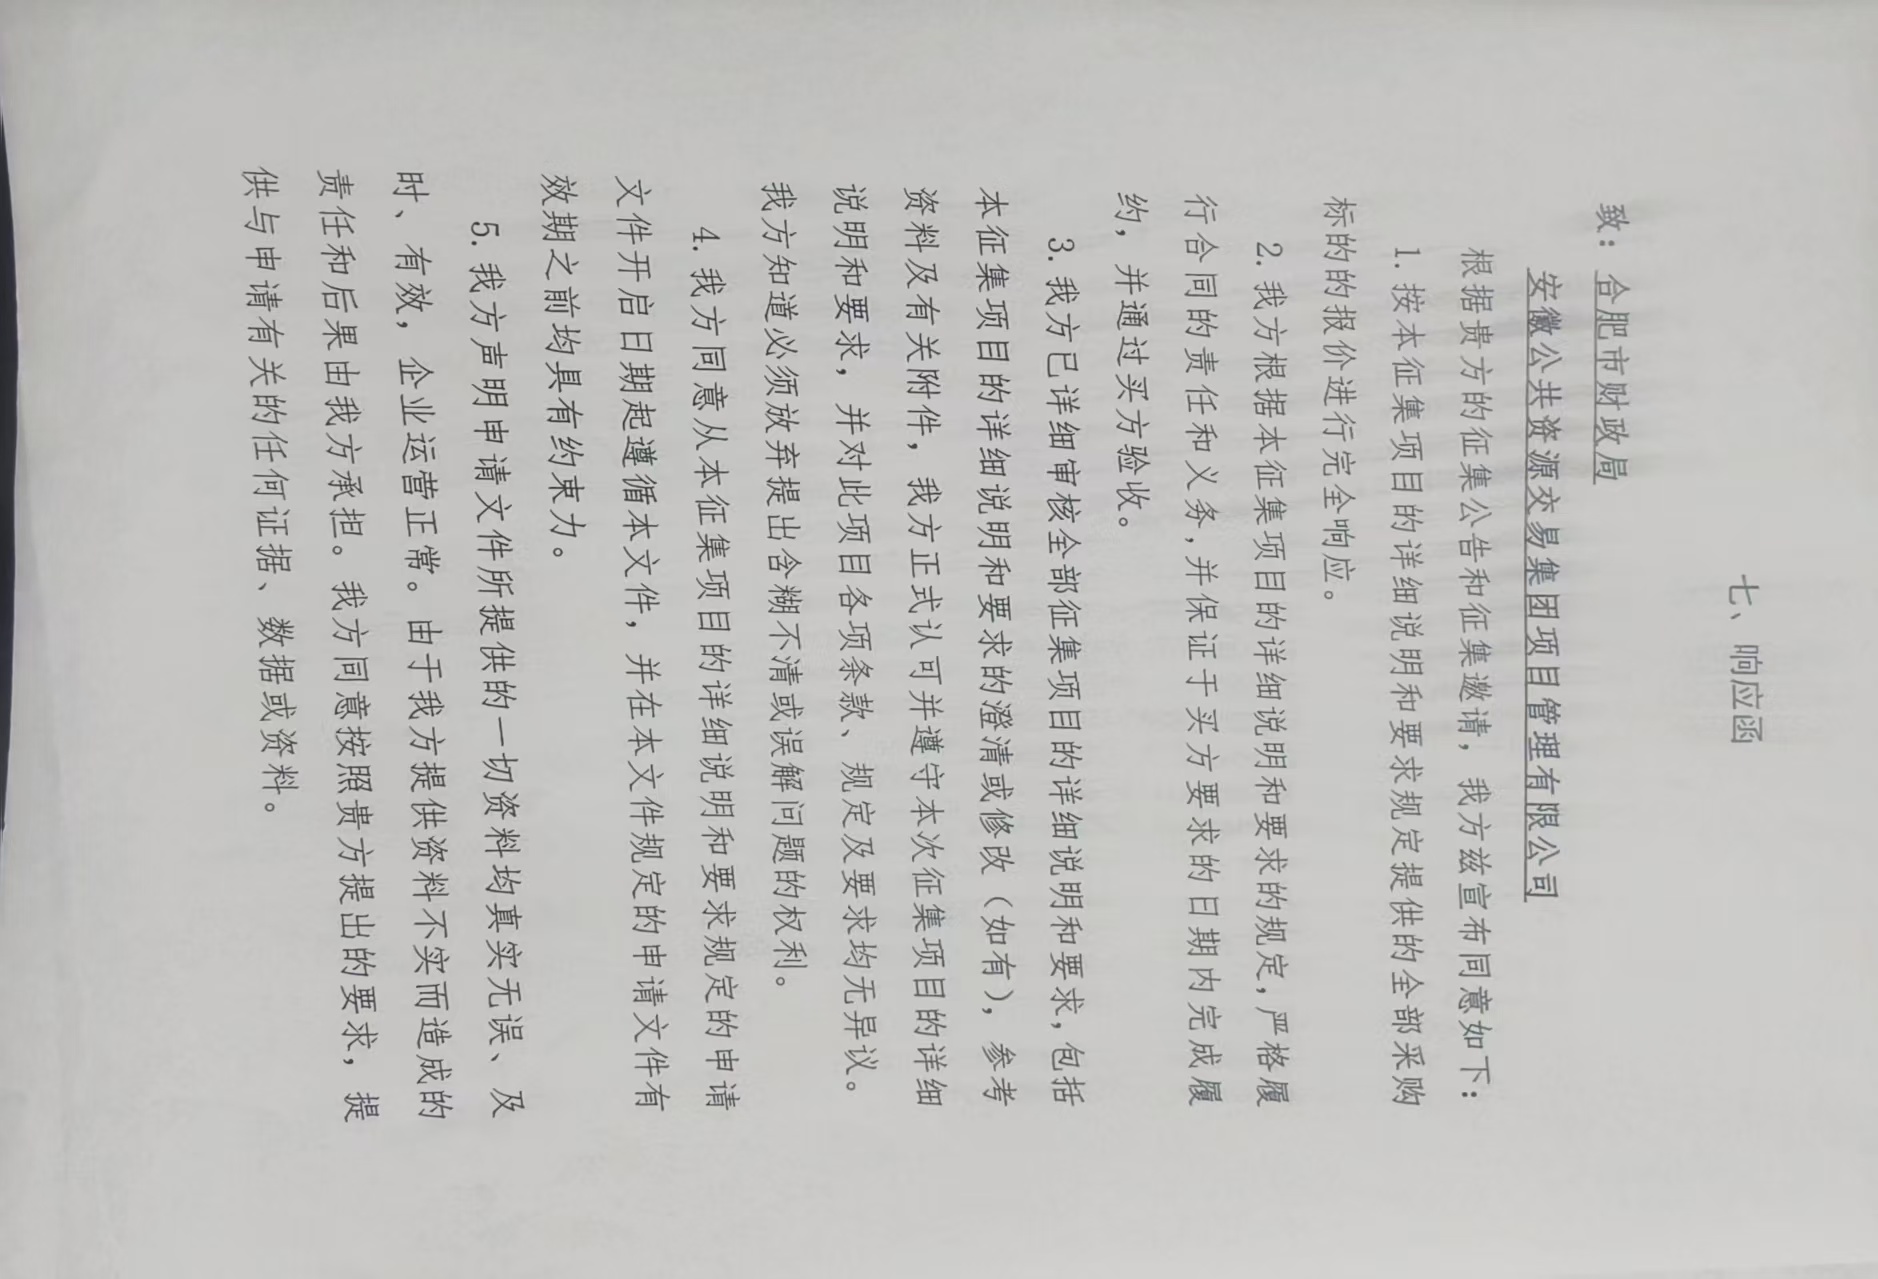 七、响应函
致：合肥市财政局
安徽公共资源交易集团项目管理有限公司
根据贵方的征集公告和征集邀请，我方兹宣布同意如下：
1. 按本征集项目的详细说明和要求规定提供的全部采购
标的的报价进行完全响应。
2. 我方根据本征集项目的详细说明和要求的规定，严格履
行合同的责任和义务,并保证于买方要求的日期内完成履
约，并通过买方验收。
3. 我方已详细审核全部征集项目的详细说明和要求，包括
本征集项目的详细说明和要求的澄清或修改（如有），参考
资料及有关附件，我方正式认可并遵守本次征集项目的详细
说明和要求，并对此项目各项条款、规定及要求均无异议。
我方知道必须放弃提出含糊不清或误解问题的权利。
4. 我方同意从本征集项目的详细说明和要求规定的申请
文件开启日期起遵循本文件，并在本文件规定的申请文件有
效期之前均具有约束力。
5. 我方声明申请文件所提供的一切资料均真实无误、及
时、有效，企业运营正常。由于我方提供资料不实而造成的
责任和后果由我方承担。我方同意按照贵方提出的要求，提
供与申请有关的任何证据、数据或资料。